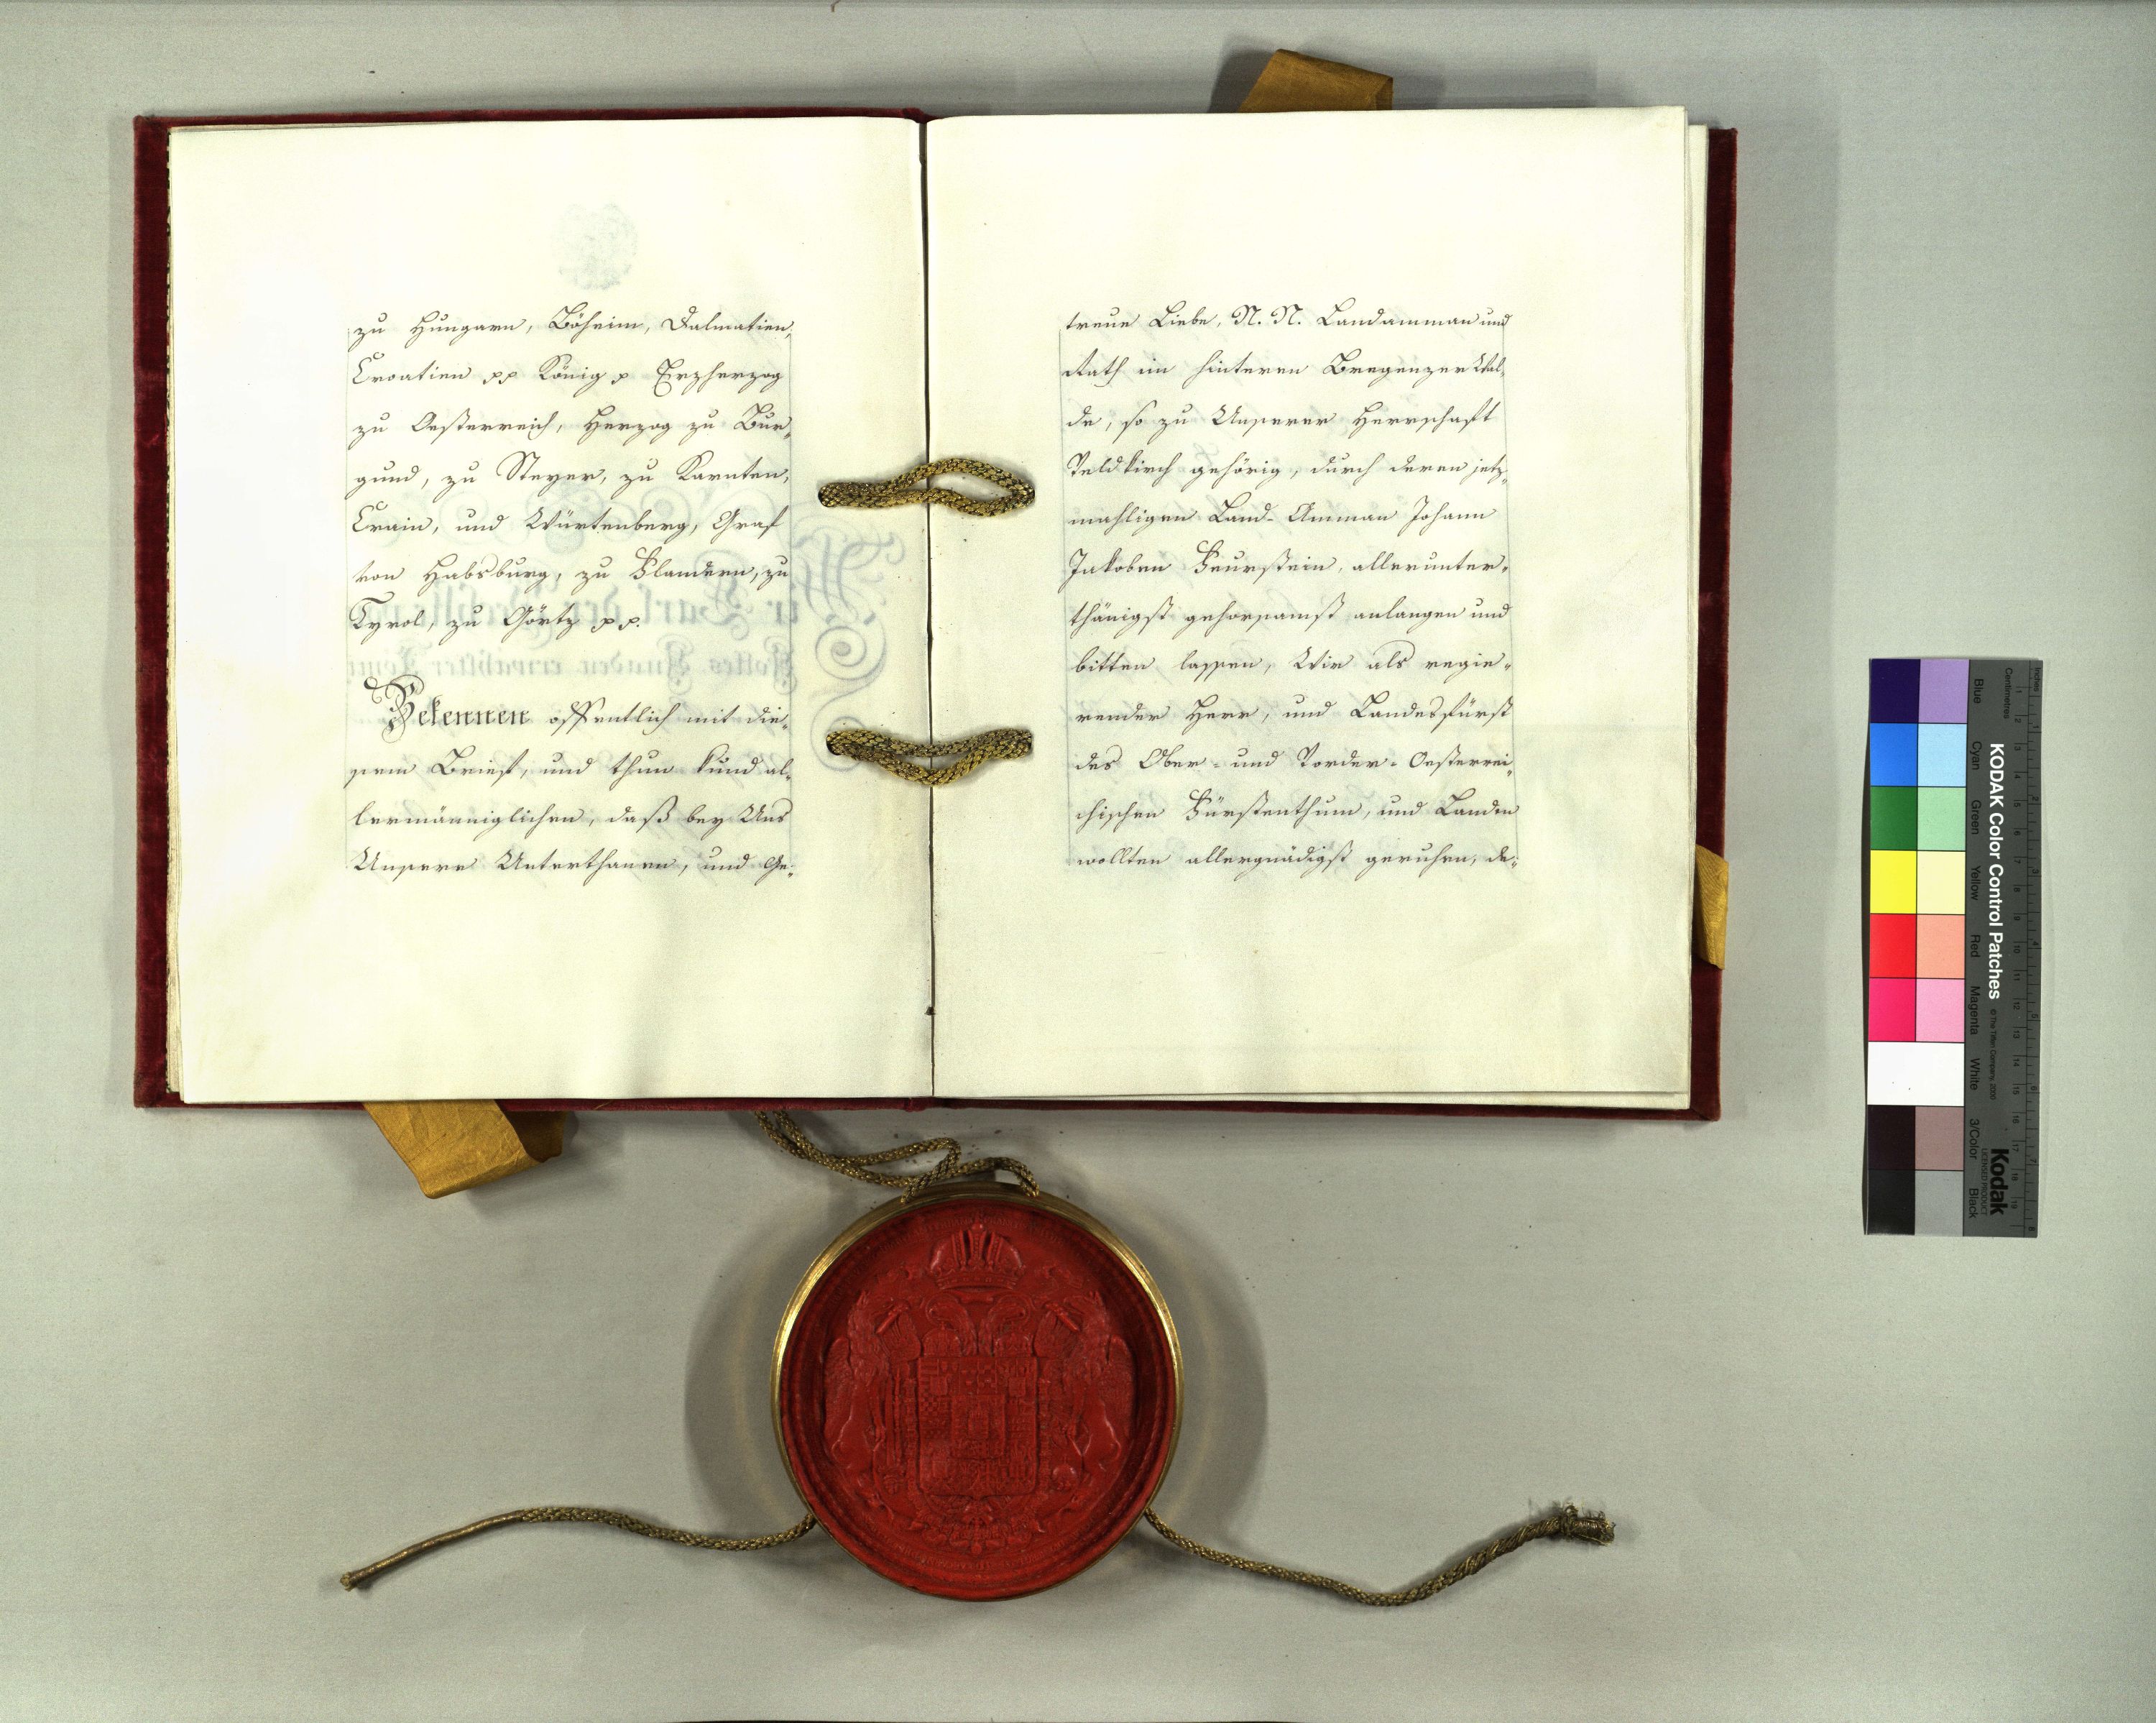 zu Hungarn, Böheim, Dalmatien,
Croatien pp König p Erzherzog
zu Oesterreich, Herzog zu Bur„
gund, zu Steyer, zu Karnten,
Crain, und Würtenberg, Graf
von Habsburg, zu Flandern, zu
Tyrol, zu Görtz pp.
Bekennen öffentlich mit die„
sem Brief, und thun kund al„
lermänniglichen, daß bey Uns
Unsere Unterthanen, und Ge„
treue Liebe, N. N. Landamman und
Rath im hinteren Bregenzer Wal„
de, so zu Unserer Herrschaft
Veldkirch gehörig, durch deren jetz„
mahligen Land-Amman Johann
Jakoben Feurstein, allerunter„
thänigst gehorsamst anlangen und
bitten lassen, Wir als regie„
render Herr, und Landesfürst
des Ober- und Vorder-Oesterrei„
chischen Fürstenthum, und Landen
wollten allergnädigst geruhen, de„
KODAK Color Control Patches
© The Tiffen Company, 2000
Kodak
LICENSED PRODUCT
Inches
Centimetres
Blue Cyan Green Yellow Red Magenta White 3/Color Black